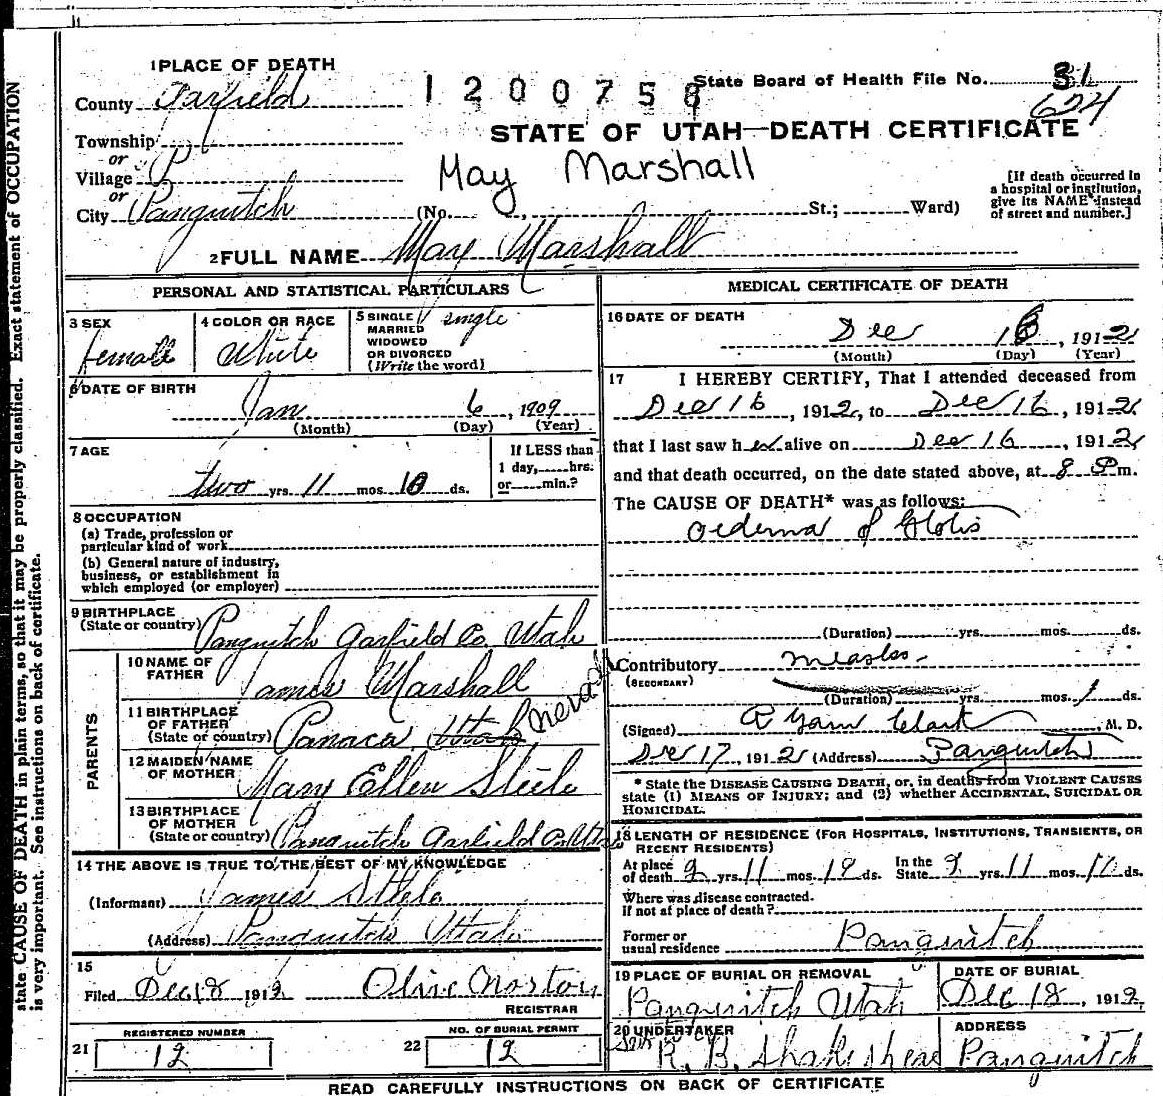 1 PLACE OF DEATH
County Garfield
1200758
State Board of Health File No. 31
624
Township
or
Village
or
City Panguitch
STATE OF UTAH—DEATH CERTIFICATE
May Marshall
(No. St.; Ward)
[If death occurred in a hospital or institution, give its NAME instead of street and number.]
2 FULL NAME May Marshall
PERSONAL AND STATISTICAL PARTICULARS
3 SEX female
4 COLOR OR RACE White
5 SINGLE MARRIED WIDOWED OR DIVORCED (Write the word) single
6 DATE OF BIRTH
Jan 6, 1909
(Month) (Day) (Year)
7 AGE
two yrs. 11 mos. 10 ds.
If LESS than 1 day, hrs. or min.?
8 OCCUPATION
(a) Trade, profession or particular kind of work
(b) General nature of industry, business, or establishment in which employed (or employer)
9 BIRTHPLACE (State or country) Panguitch Garfield Co. Utah
PARENTS
10 NAME OF FATHER James Marshall
11 BIRTHPLACE OF FATHER (State or country) Panaca Utah Nevada
12 MAIDEN NAME OF MOTHER Mary Ellen Steele
13 BIRTHPLACE OF MOTHER (State or country) Panguitch Garfield Co Utah
14 THE ABOVE IS TRUE TO THE BEST OF MY KNOWLEDGE
(Informant) James Steele
(Address) Panguitch Utah
15
Filed Dec 18 1912 Olive
REGISTRAR
REGISTERED NUMBER
21 12
NO. OF BURIAL PERMIT
22 12
MEDICAL CERTIFICATE OF DEATH
16 DATE OF DEATH
Dec 16, 1912
(Month) (Day) (Year)
17 I HEREBY CERTIFY, That I attended deceased from
Dec 16, 1912, to Dec 16, 1912
that I last saw her alive on Dec 16, 1912
and that death occurred, on the date stated above, at 8 P m.
The CAUSE OF DEATH* was as follows:
oedema of Glotis
(Duration) yrs. mos. ds.
Contributory measles
(SECONDARY)
(Duration) yrs. mos. ds.
(Signed) Clark, M. D.
Dec 17, 1912 (Address) Panguitch
* State the DISEASE CAUSING DEATH, or, in deaths from VIOLENT CAUSES state (1) MEANS OF INJURY; and (2) whether ACCIDENTAL, SUICIDAL OR HOMICIDAL.
18 LENGTH OF RESIDENCE (FOR HOSPITALS, INSTITUTIONS, TRANSIENTS, OR RECENT RESIDENTS)
At place of death 2 yrs. 11 mos. ds. In the State 2 yrs. 11 mos. ds.
Where was disease contracted.
If not at place of death?
Former or usual residence Panguitch
19 PLACE OF BURIAL OR REMOVAL
Panguitch Utah
DATE OF BURIAL
Dec 18, 1912
20 UNDERTAKER
R. B. Shakespeare
ADDRESS
Panguitch
READ CAREFULLY INSTRUCTIONS ON BACK OF CERTIFICATE
state CAUSE OF DEATH in plain terms, so that it may be properly classified. Exact statement of OCCUPATION
is very important. See instructions on back of certificate.